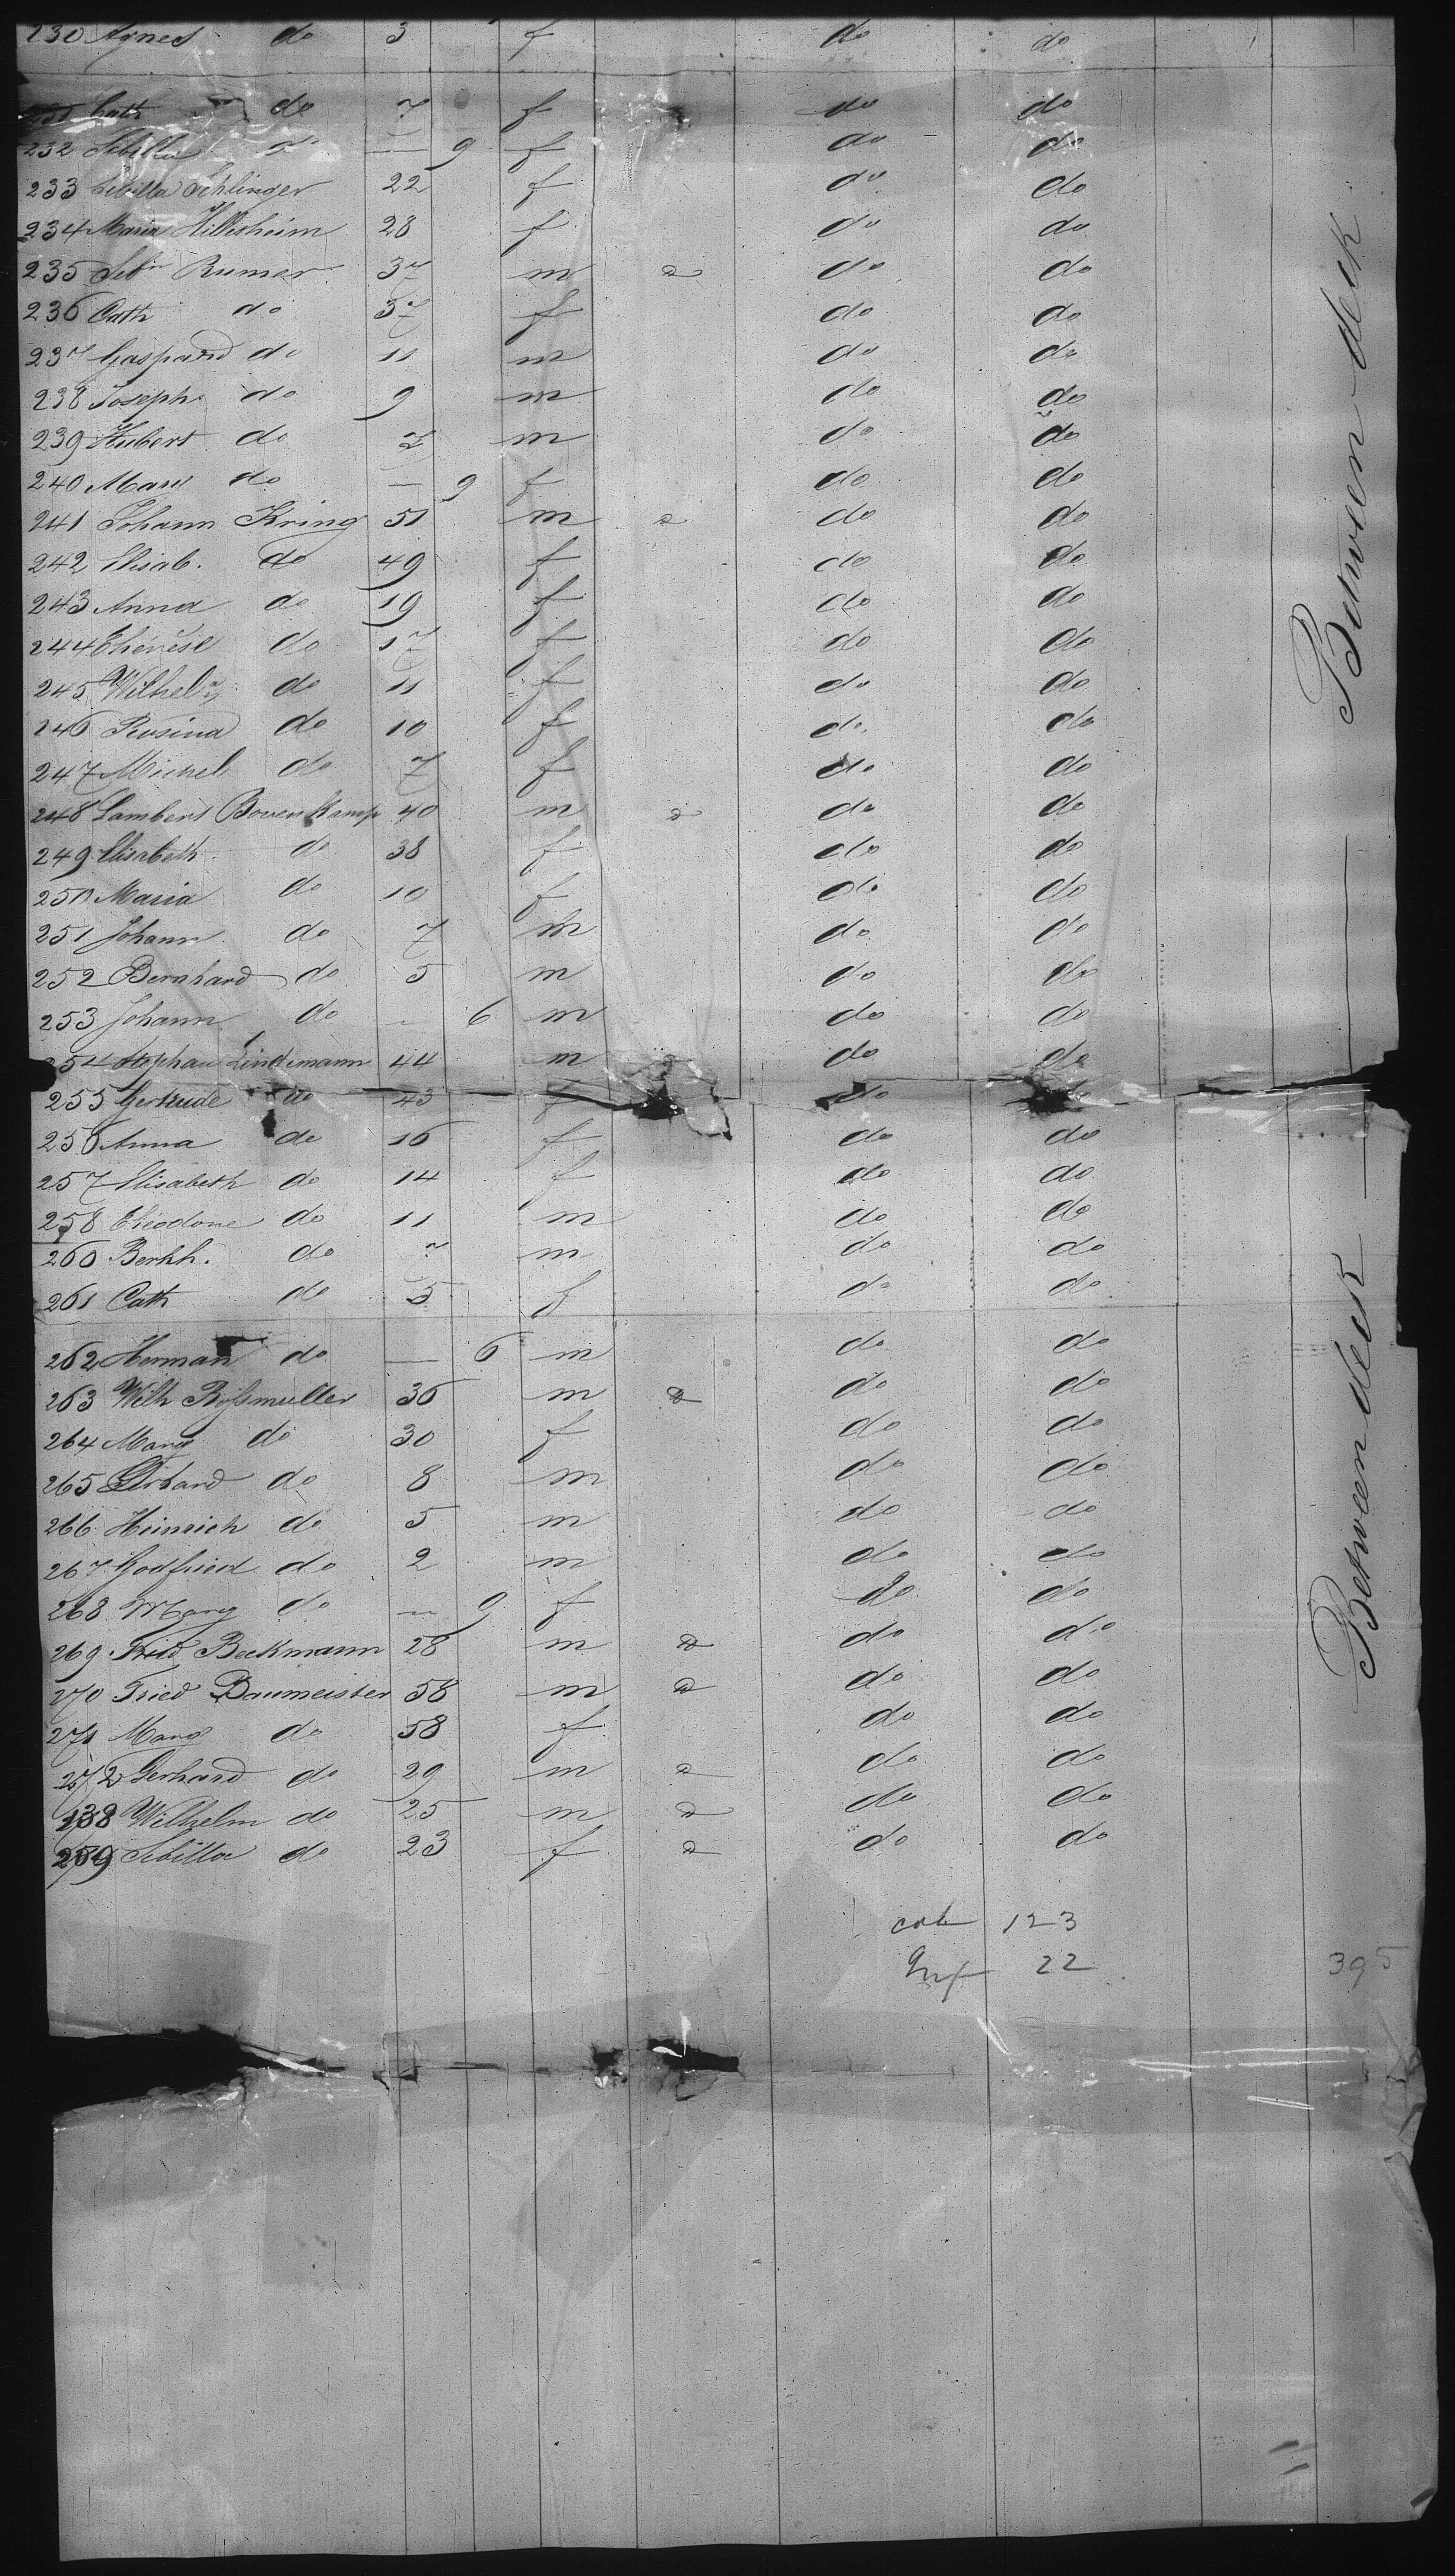 230 Agnes do 3 f do do
231 Cath do 7 f do do
232 Sibilla do — 9 f do do
233 Sibilla Schlinger 22 f do do
234 Maria Hillisheim 28 f do do
235 Sebn Rumer 37 m do do
236 Cath do 37 f do do
237 Gaspard do 11 m do do
238 Joseph do 9 m do do
239 Hubert do 2 m do do
240 Marg do — 9 f do do
241 Johann Kring 51 m do do
242 Elisab. do 49 f do do
243 Anna do 19 f do do
244 Thérèse do 17 f do do
245 Wilhel do 11 f do do
246 Rosina do 10 f do do
247 Michel do 7 f do do
248 Lambert Bovenkamp 40 m do do
249 Elisabeth do 38 f do do
250 Maria do 10 f do do
251 Johann do 7 m do do
252 Bernhard do 5 m do do
253 Johann do — 6 m do do
254 Stephan Lindemann 44 m do do
255 Gertrude do 43 f do do
256 Anna do 16 f do do
257 Elisabeth do 14 f do do
258 Theodore do 11 m do do
260 Berhh. do 7 m do do
261 Cath do 5 f do do
262 Herman do — 6 m do do
263 Wilh Bossmuller 36 m do do
264 Marg do 30 f do do
265 Gerhard do 8 m do do
266 Heinrich do 5 m do do
267 Godfried do 2 m do do
268 Marg do — 9 f do do
269 Fried Beckmann 28 m do do
270 Fried Baumeister 58 m do do
271 Marg do 58 f do do
272 Gerhard do 29 m do do
138 Wilhelm do 25 m do do
259 Sibilla do 23 f do do
Between deck
Between deck
123
Inf 22
395